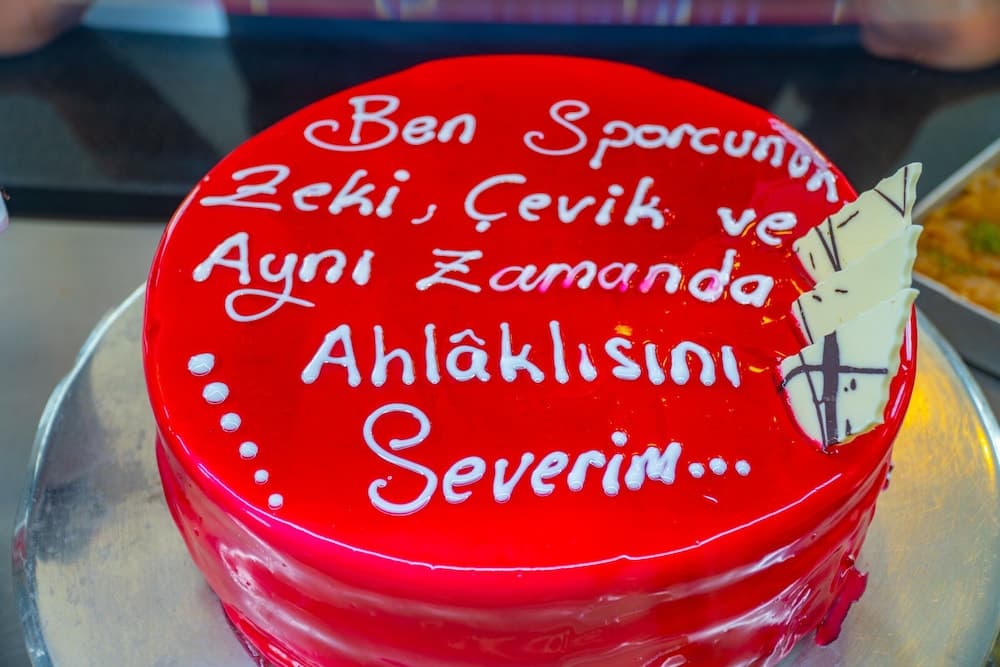 Ben Sporcunun
Zeki, Çevik ve
Aynı Zamanda
Ahlâklısını
Severim...